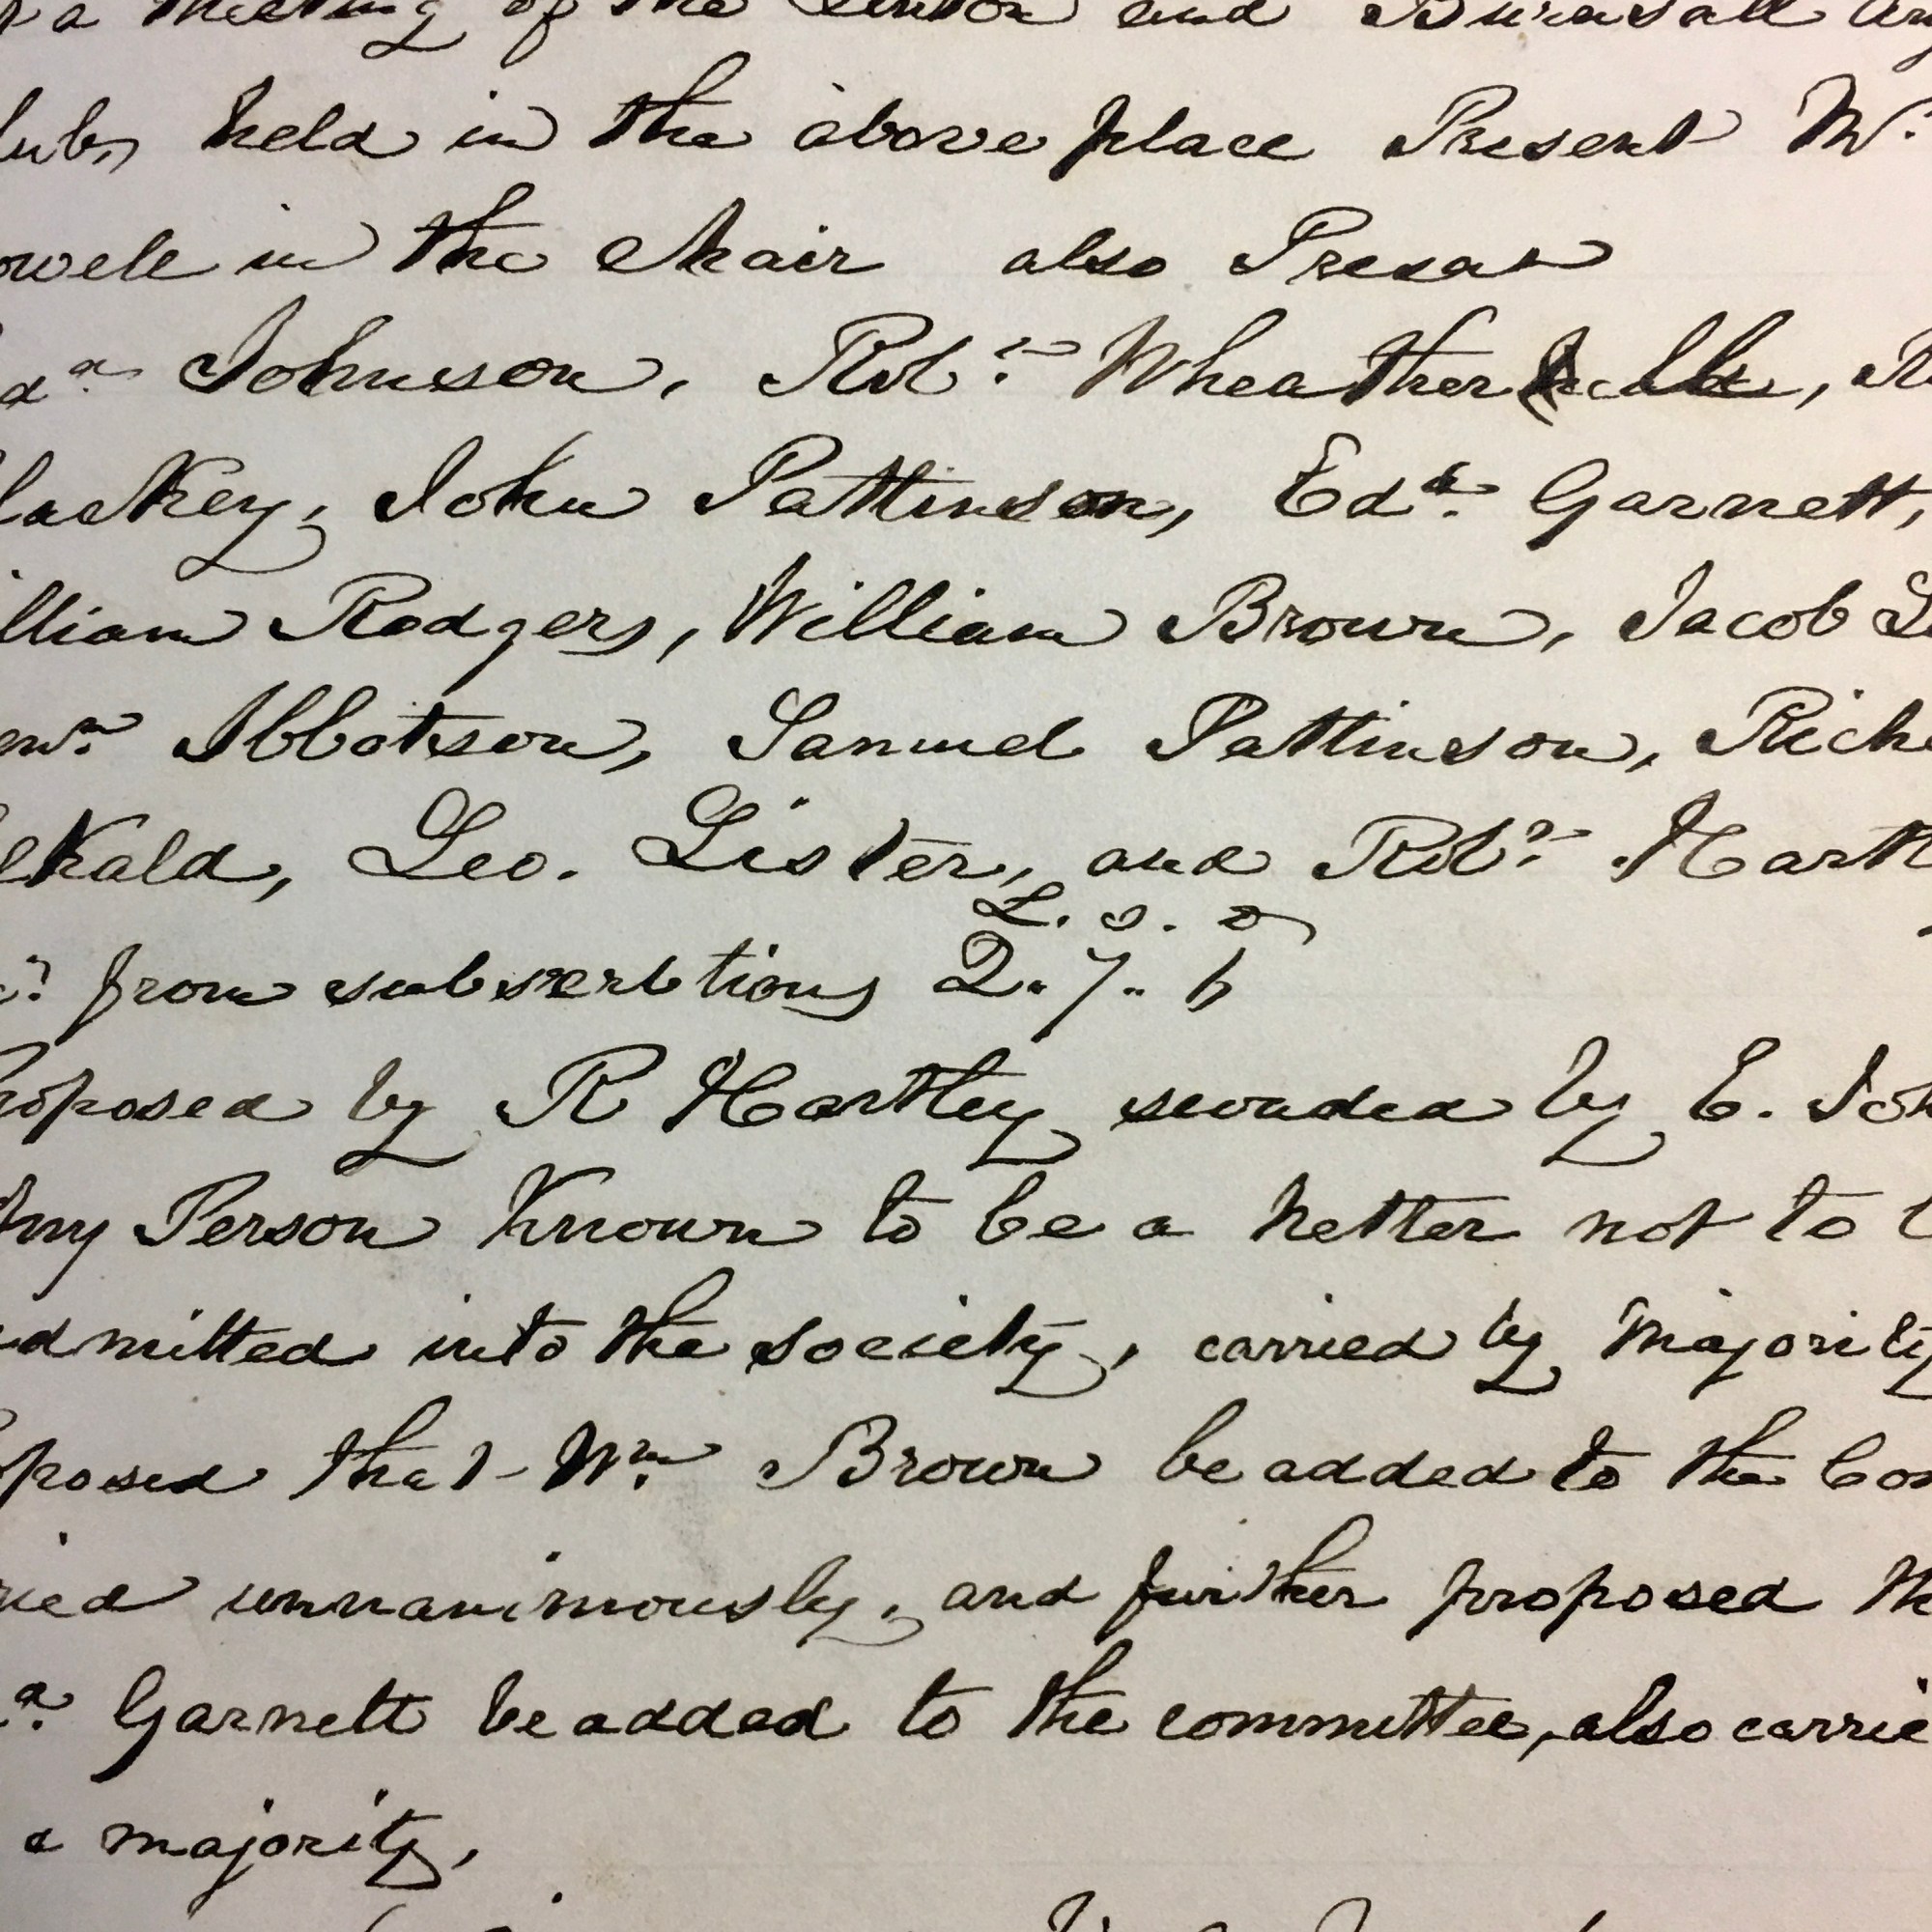 a meeting of the Linton and Burnsall
held in the above place Present Mr.
in the chair also Presant
Johnson, Robt. Wheatherhall,
John Pattinson, Edd. Garnett,
lliam Rodgers, William Brown, Jacob
Ibbotson, Samuel Pattinson, Rich
Geo. Lister, and Robt. Hartl
L. s. d
from subscerbtions 2.. 7.. 6
roposed by R Hartley seconded by E. Joh
Any Person Known to be a netter not to b
admitted into the society, carried by majority
posed that Wm. Brown be added to the Com
ried unnanimously, and further proposed th
d. Garnett be added to the committee, also carrie
a majority,